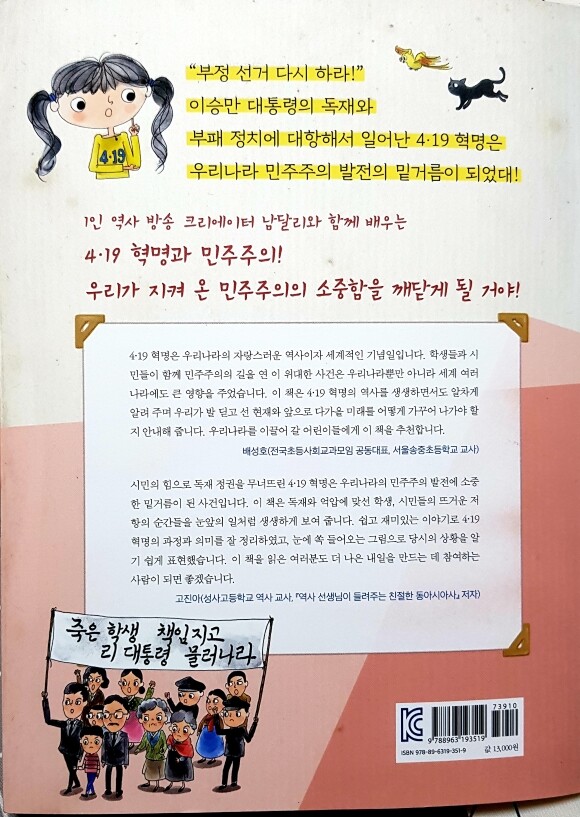 “부정 선거 다시 하라!”
이승만 대통령의 독재와
부패 정치에 대항해서 일어난 4·19 혁명은
우리나라 민주주의 발전의 밑거름이 되었대!
4·19
1인 역사 방송 크리에이터 남달리와 함께 배우는
4·19 혁명과 민주주의!
우리가 지켜 온 민주주의의 소중함을 깨닫게 될 거야!
4·19 혁명은 우리나라의 자랑스러운 역사이자 세계적인 기념일입니다. 학생들과 시
민들이 함께 민주주의의 길을 연 이 위대한 사건은 우리나라뿐만 아니라 세계 여러
나라에도 큰 영향을 주었습니다. 이 책은 4·19 혁명의 역사를 생생하면서도 알차게
알려 주며 우리가 발 딛고 선 현재와 앞으로 다가올 미래를 어떻게 가꾸어 나가야 할
지 안내해 줍니다. 우리나라를 이끌어 갈 어린이들에게 이 책을 추천합니다.
배성호(전국초등사회교과모임 공동대표, 서울송중초등학교 교사)
시민의 힘으로 독재 정권을 무너뜨린 4·19 혁명은 우리나라의 민주주의 발전에 소중
한 밑거름이 된 사건입니다. 이 책은 독재와 억압에 맞선 학생, 시민들의 뜨거운 저
항의 순간들을 눈앞의 일처럼 생생하게 보여 줍니다. 쉽고 재미있는 이야기로 4·19
혁명의 과정과 의미를 잘 정리하였고, 눈에 쏙 들어오는 그림으로 당시의 상황을 알
기 쉽게 표현했습니다. 이 책을 읽은 여러분도 더 나은 내일을 만드는 데 참여하는
사람이 되면 좋겠습니다.
고진아(성사고등학교 역사 교사, 『역사 선생님이 들려주는 친절한 동아시아사』 저자)
죽은 학생 책임지고
리 대통령 물러나라
73910
9 788963 193519
ISBN 978-89-6319-351-9
값 13,000원